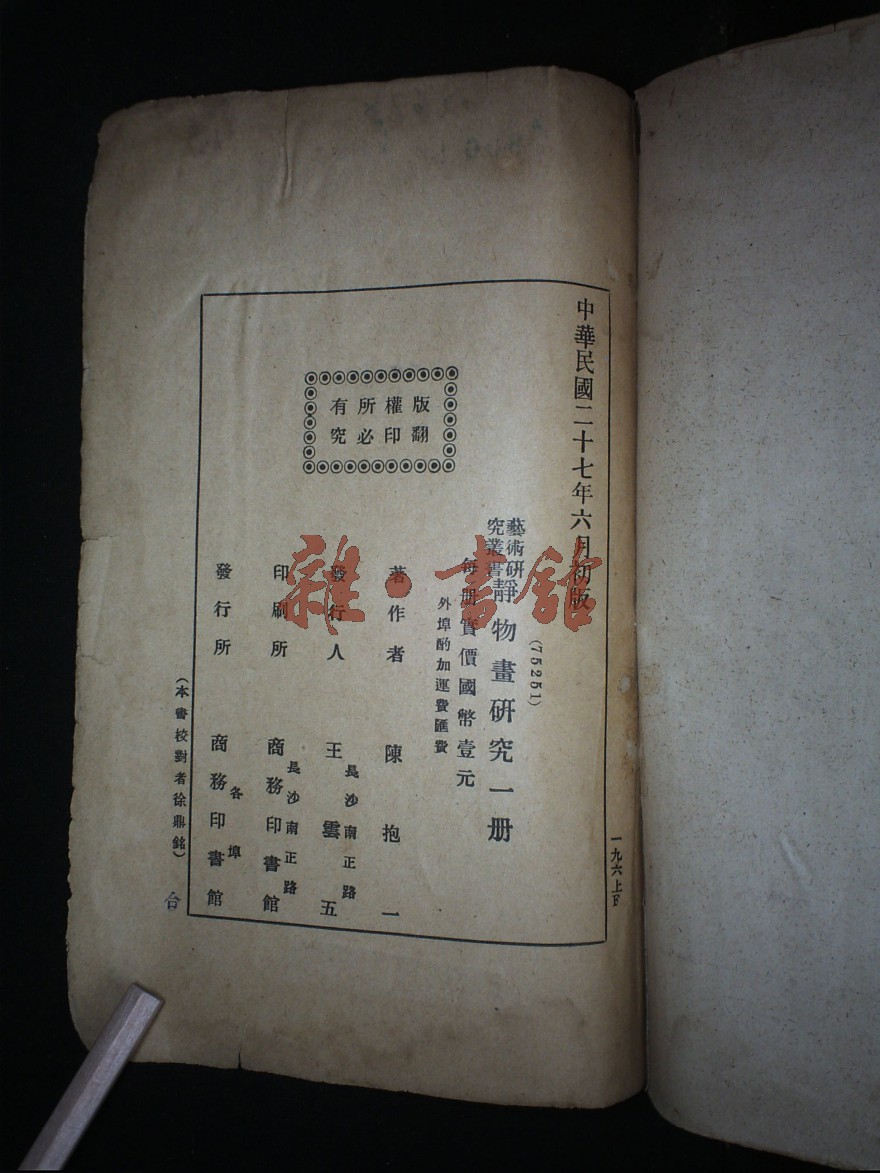 中華民國二十七年六月初版
版權所有
翻印必究
(75251)
藝術研
究叢書
靜物畫研究一册
每册實價國幣壹元
外埠酌加運費匯費
著作者 陳抱一
長沙南正路
發行人 王雲五
長沙南正路
印刷所 商務印書館
各埠
發行所 商務印書館
(本書校對者徐鼎銘)
台
雜·書館